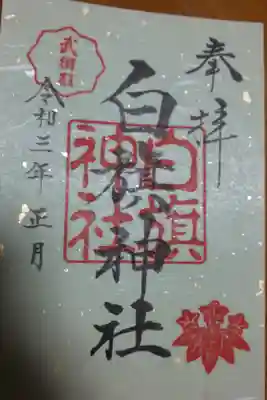 奉拝
白旗神社
白旗
神社
令和三年正月